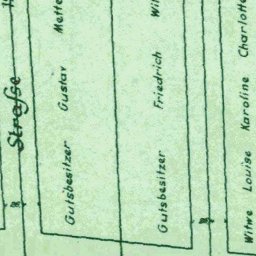 Straße
Gutsbesitzer Gustav Mette
Gutsbesitzer Friedrich Wil
Witwe Louise Karoline Charlotte